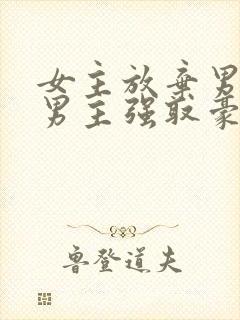 女主放弃男
男主强取豪
鲁登道夫